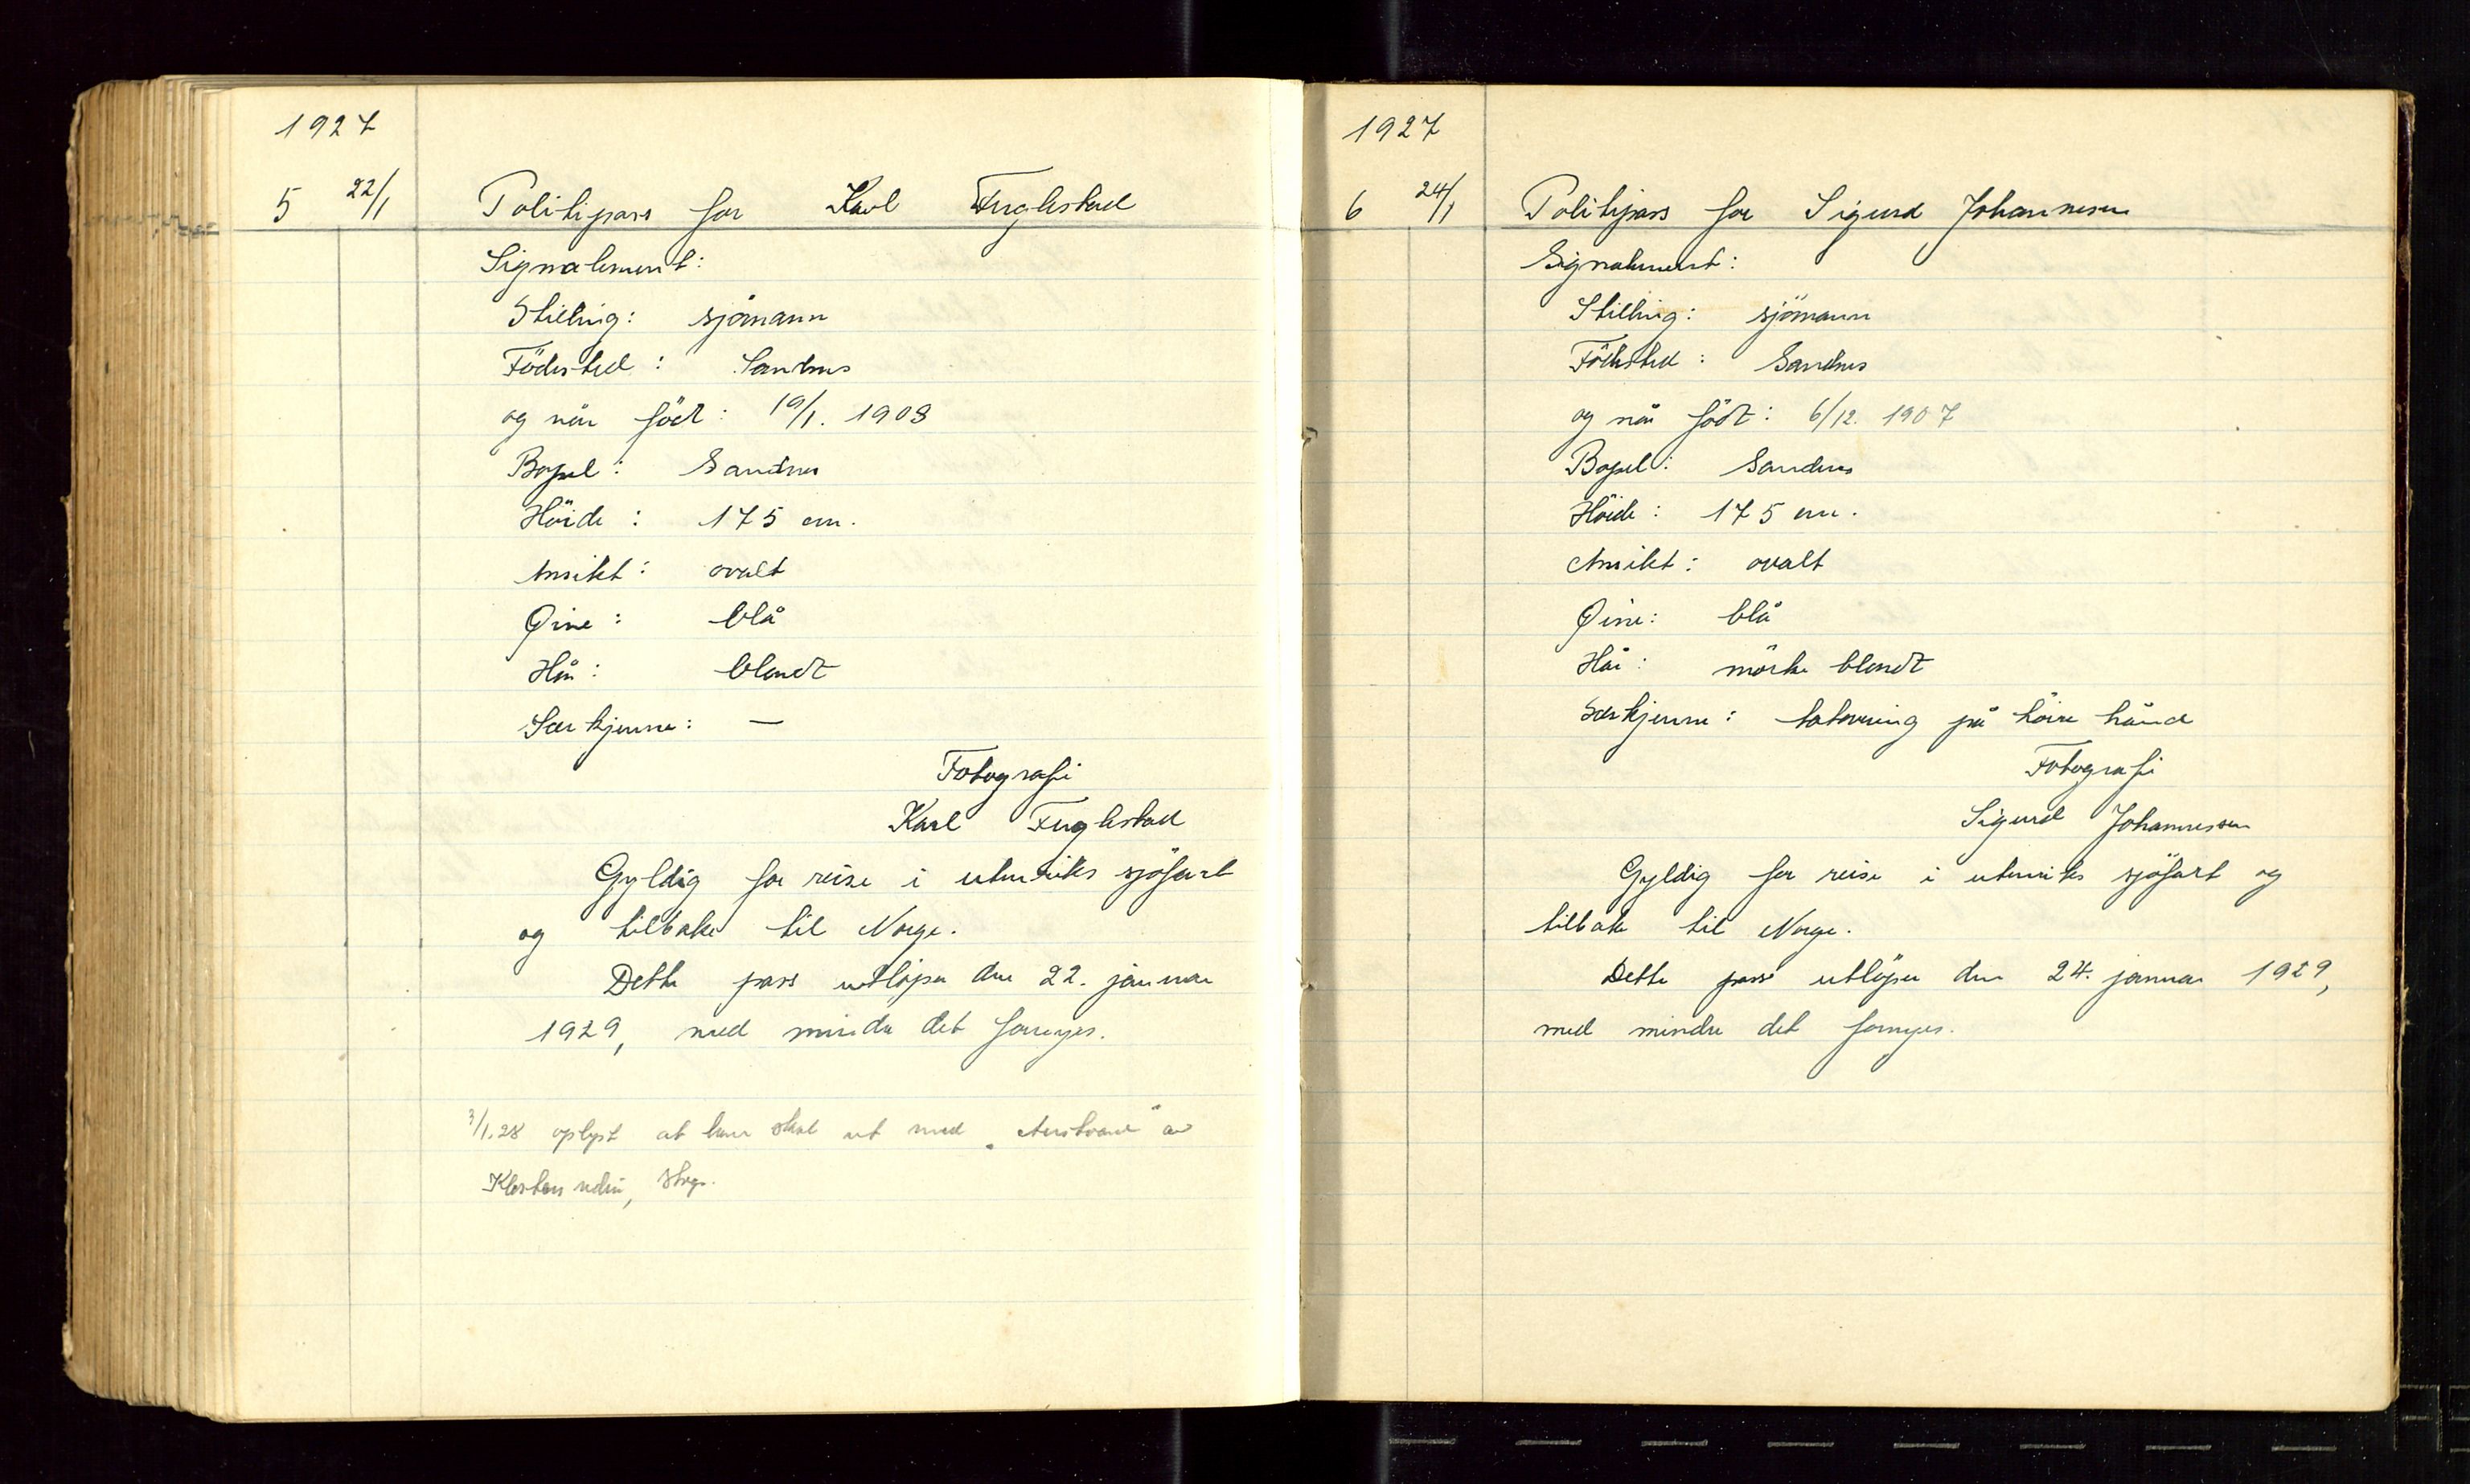 1927
5 22/1 Politipass for Karl Fuglestad
Signalement:
Stilling: sjömann
Födested: Sandnes
og når födt: 19/1. 1908
Bopel: Sandnes
Höide: 175 cm.
Ansikt: ovalt
Øine: blå
Hår: blondt
Særkjenne: —
Fotografi
Karl Fuglestad
Gyldig for reise i utenriks sjöfart
og tilbake til Norge.
Dette pass utlöper den 22. januar
1929, med mindre det fornyes.
3/1.28 oplyst at han skal ut med av
1927
6 24/1 Politipass for Sigurd Johannesen
Signalement:
Stilling: sjömann
Födested: Sandnes
og når födt: 6/12. 1907
Bopel: Sandnes
Höide: 175 cm.
Ansikt: ovalt
Øine: blå
Hår: mörke blondt
Særkjenne: tatovering på höire hånd
Fotografi
Sigurd Johannessen
Gyldig for reise i utenriks sjöfart og
tilbake til Norge.
Dette pass utlöper den 24. januar 1929,
med mindre det fornyes.